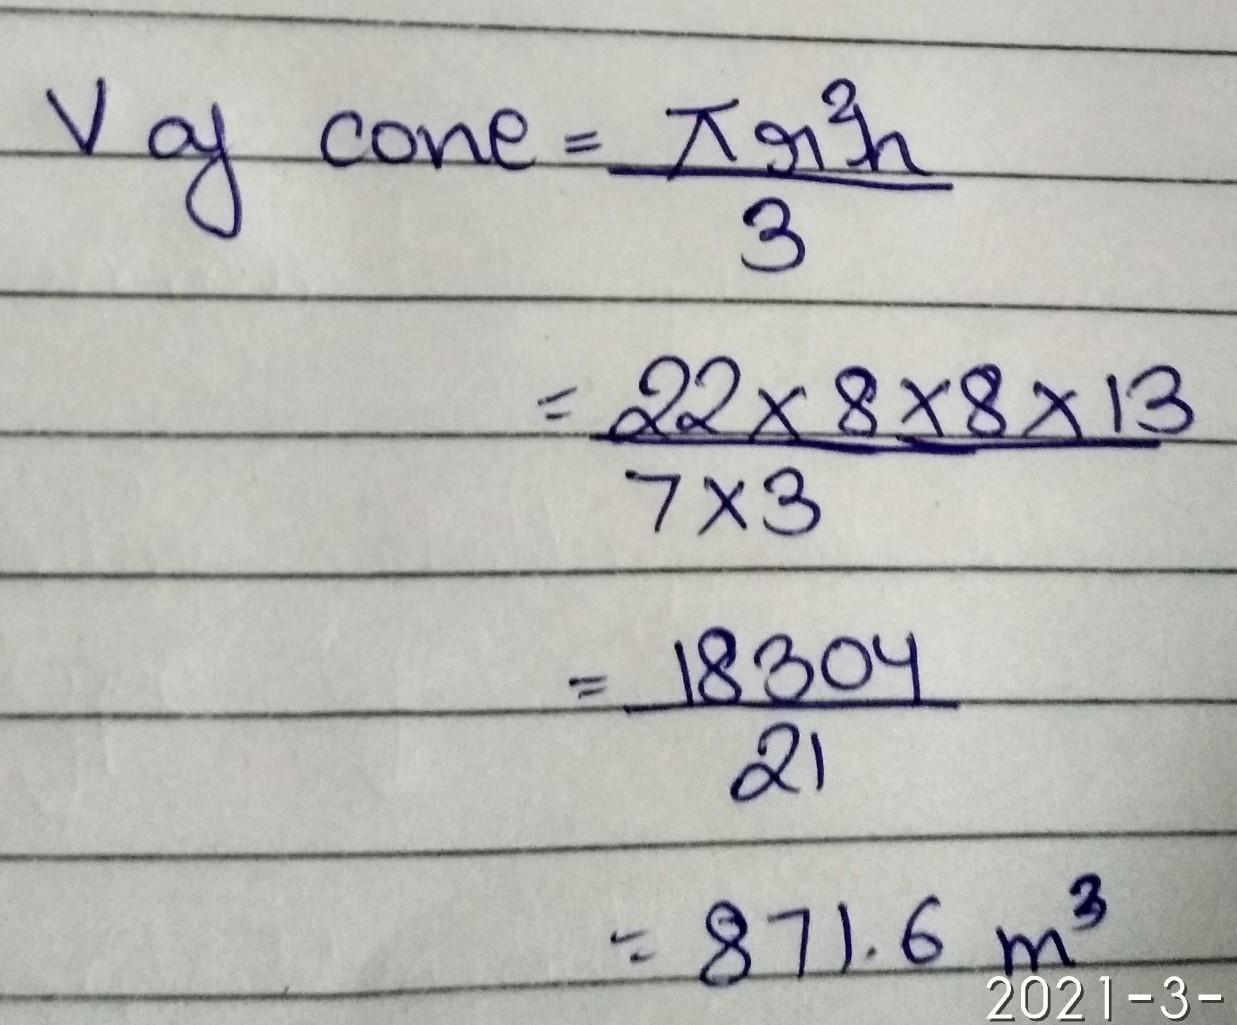 V of cone = πr²h
3
= 22 × 8 × 8 × 13
7 × 3
= 18304
21
= 871.6 m³
2021-3-